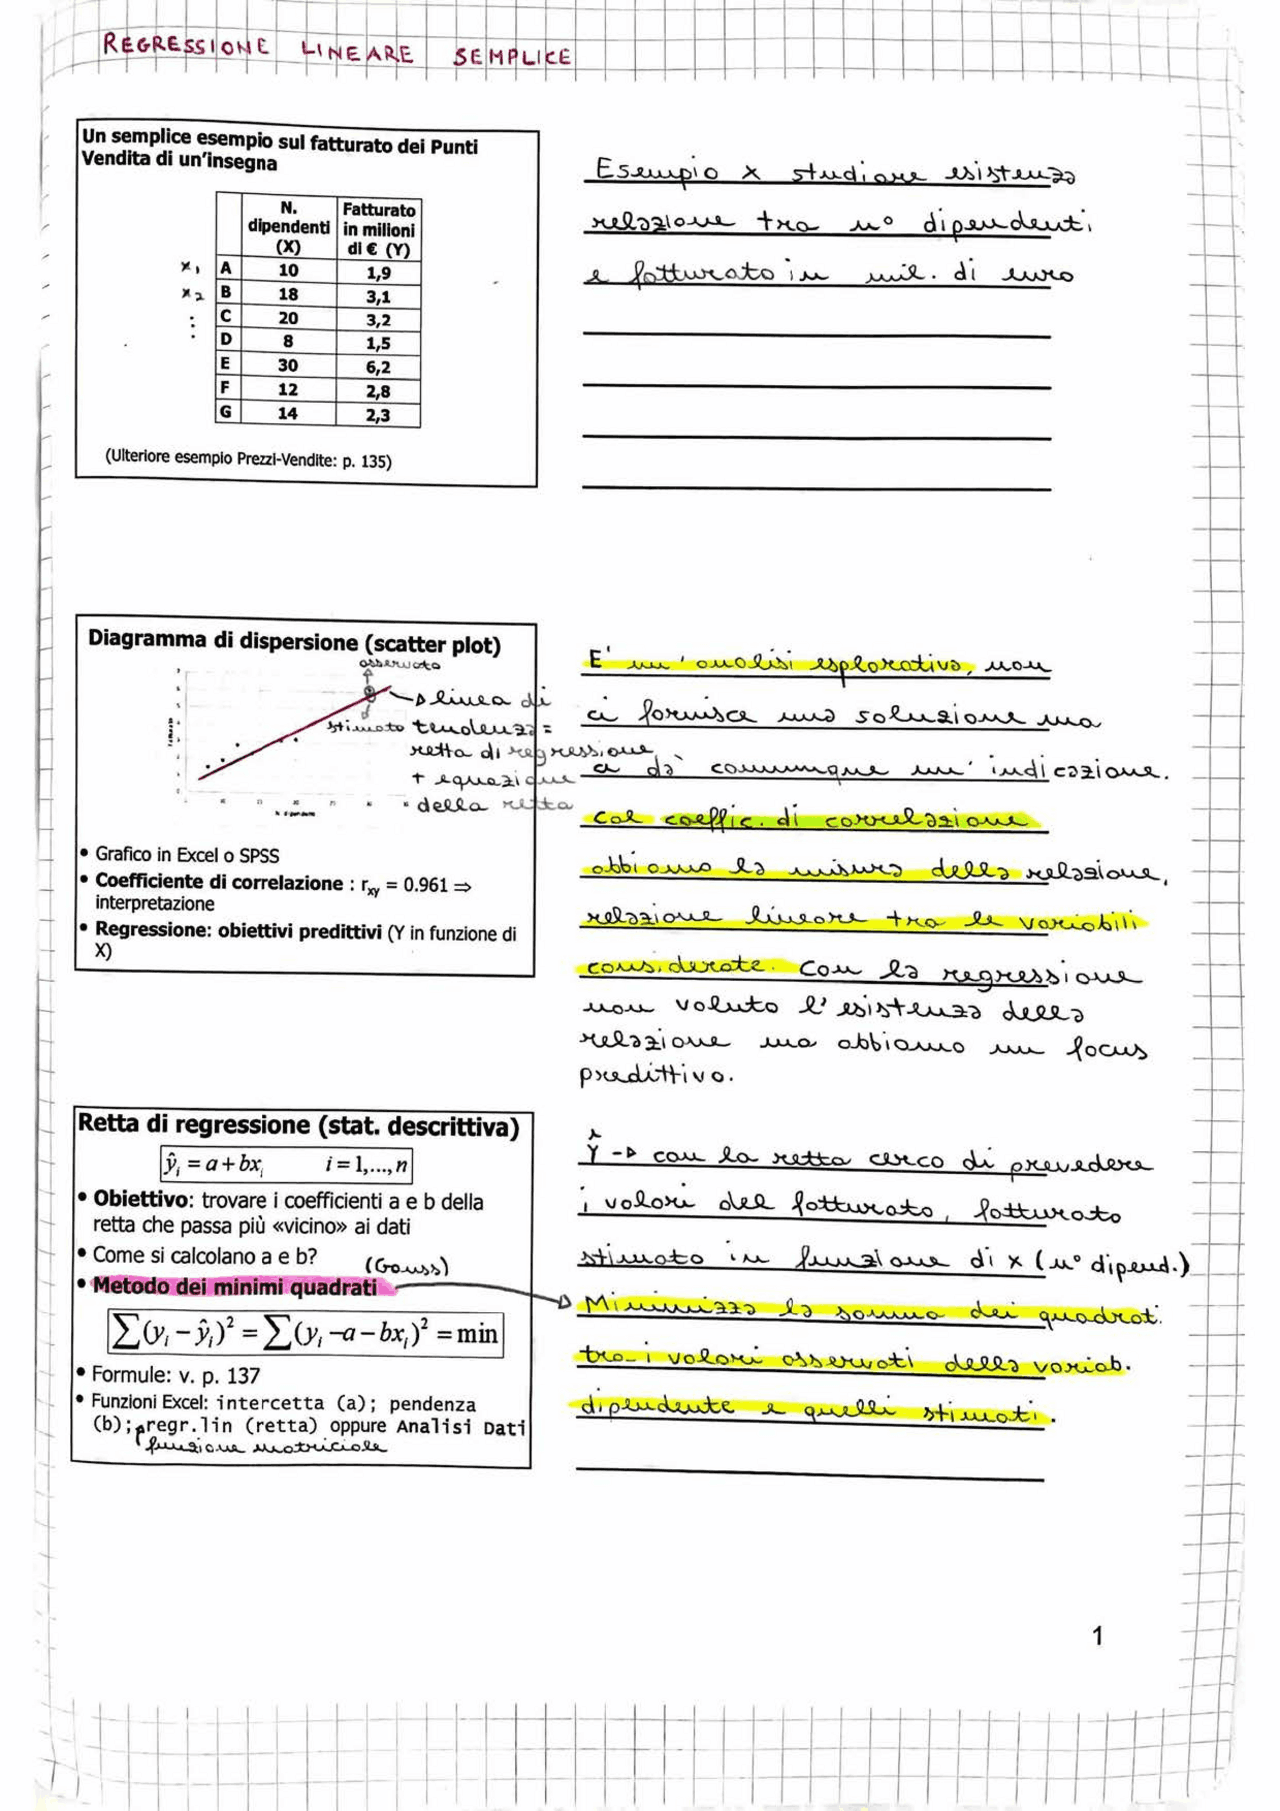 REGRESSIONE LINEARE SEMPLICE
Un semplice esempio sul fatturato dei Punti
Vendita di un'insegna
N. dipendenti (X) Fatturato in milioni di € (Y)
x₁ A 10 1,9
x₂ B 18 3,1
⋮ C 20 3,2
D 8 1,5
E 30 6,2
F 12 2,8
G 14 2,3
(Ulteriore esempio Prezzi-Vendite: p. 135)
Esempio x studiare esistenza
relazione tra n° dipendenti
e fatturato in mil. di euro
Diagramma di dispersione (scatter plot)
osservato
→ linea di
stimato tendenza =
retta di regressione
+ equazione
della retta
• Grafico in Excel o SPSS
• Coefficiente di correlazione : rxy = 0.961 ⇒
interpretazione
• Regressione: obiettivi predittivi (Y in funzione di
X)
E' un'analisi esplorativa, non
ci fornisce una soluzione ma
ci dà comunque un'indicazione.
Col coeffic. di correlazione
abbiamo la misura della relazione,
relazione lineare tra le variabili
considerate. Con la regressione
non valuto l'esistenza della
relazione ma abbiamo un focus
predittivo.
Retta di regressione (stat. descrittiva)
ŷᵢ = a + bxᵢ i = 1,..., n
• Obiettivo: trovare i coefficienti a e b della
retta che passa più «vicino» ai dati
• Come si calcolano a e b?
(Gauss)
• Metodo dei minimi quadrati
∑(yᵢ − ŷᵢ)² = ∑(yᵢ − a − bxᵢ)² = min
• Formule: v. p. 137
• Funzioni Excel: intercetta (a); pendenza
(b); regr.lin (retta) oppure Analisi Dati
funzione matriciale
Ŷ → con la retta cerco di prevedere
i valori del fatturato, fatturato
stimato in funzione di x (n° dipend.)
Minimizza la somma dei quadrati
tra i valori osservati della variab.
dipendente e quelli stimati.
1